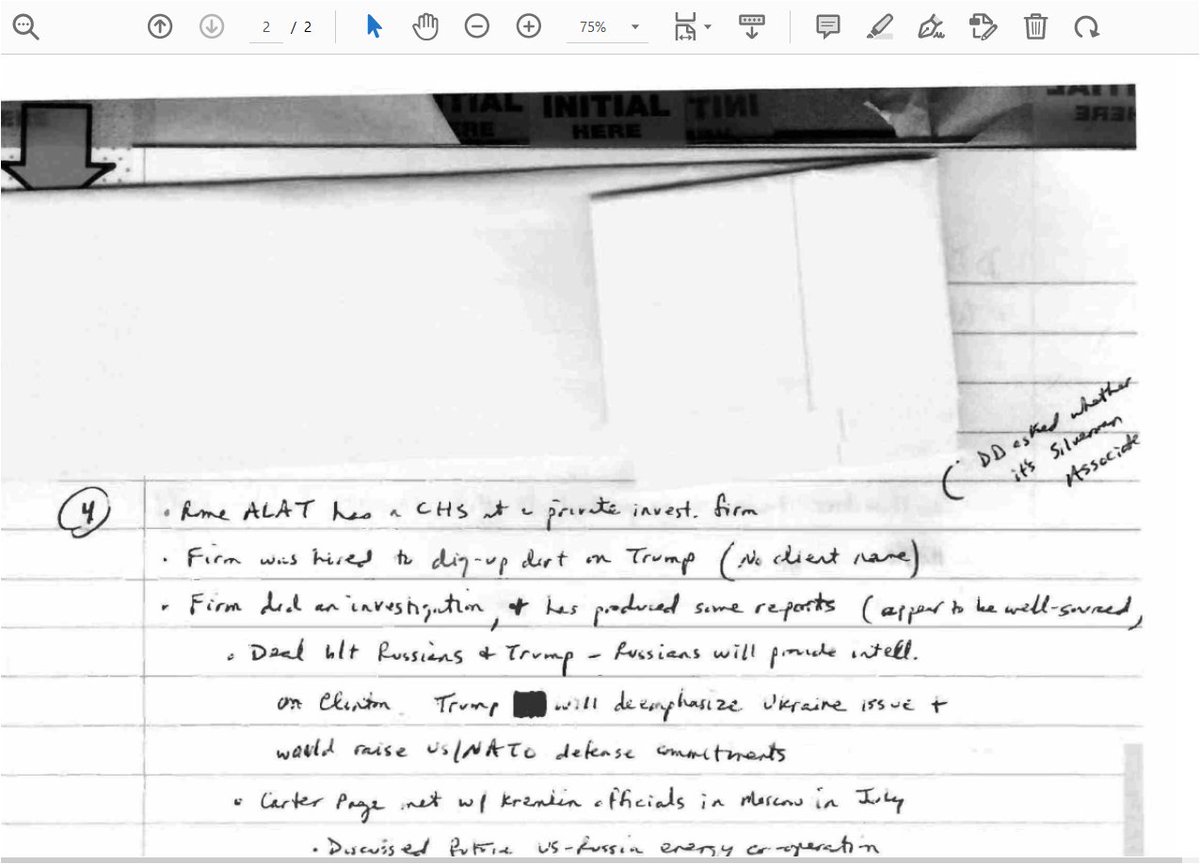 2 / 2
75%
TIAL INITIAL INIT
RE HERE
(· DD asked whether
it's Silverman
Associate
4
· Rome ALAT has a CHS at a private invest. firm
· Firm was hired to dig-up dirt on Trump (No client name)
· Firm did an investigation, + has produced some reports (appear to be well-sourced)
· Deal b/t Russians + Trump - Russians will provide intell.
on Clinton. Trump will deemphasize Ukraine issue +
would raise US/NATO defense commitments
· Carter Page met w/ Kremlin officials in Moscow in July
· Discussed future US-Russia energy co-operation